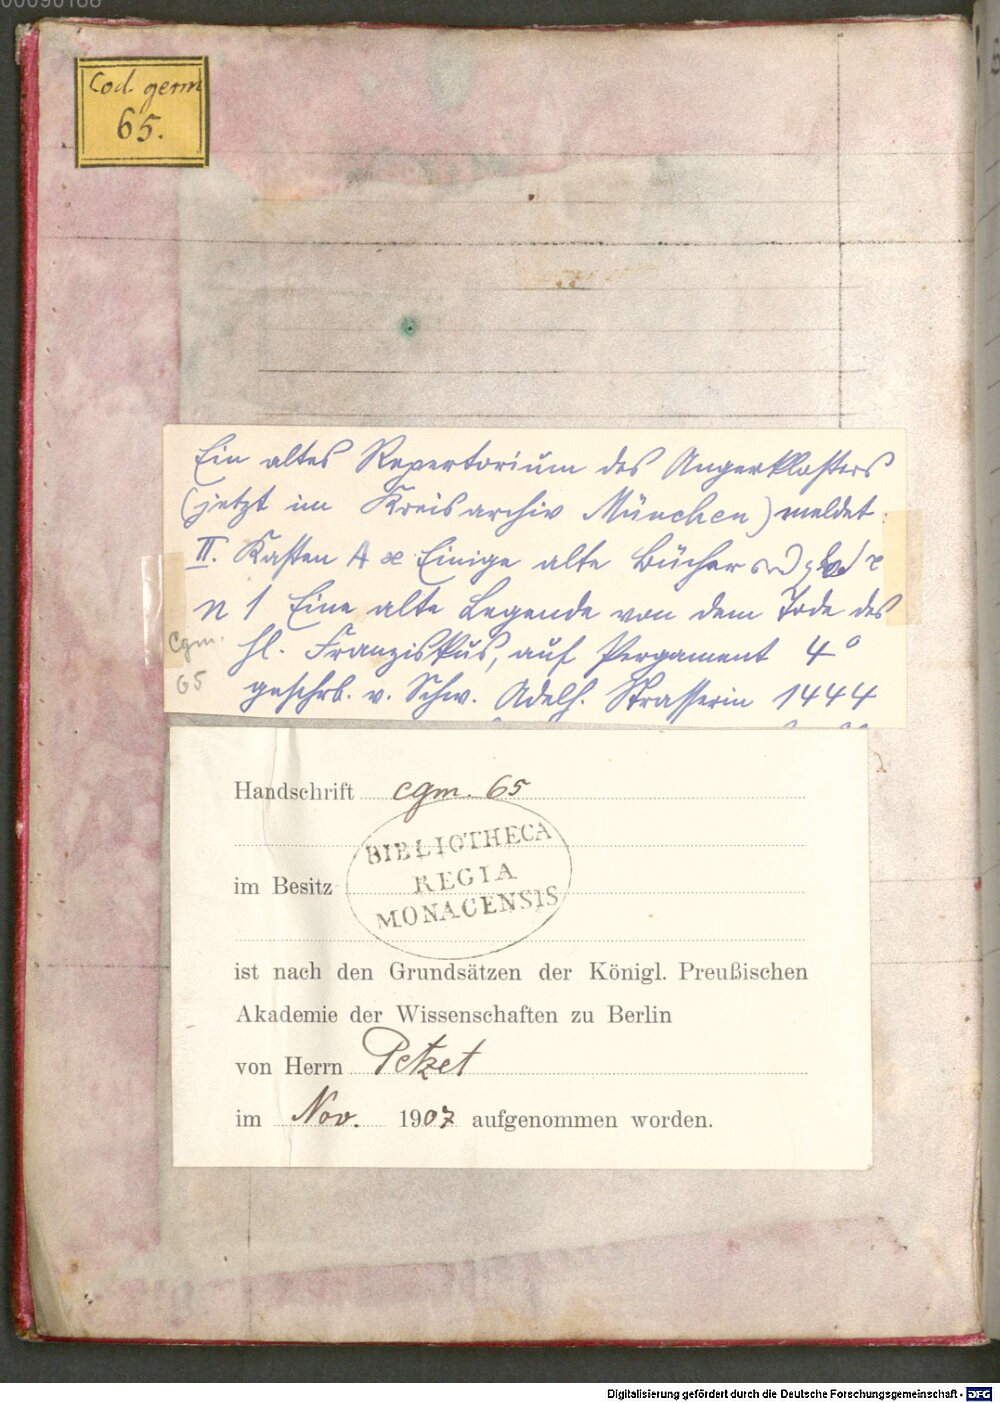 00090168
Cod. germ
65.
Ein altes Repertorium des Angerklosters
(jetzt im Kreisarchiv München) meldet
II. Kasten A æ Einige alte Bücher
N 1 Eine alte Legende von dem Tode des
hl. Franziskus, auf Pergament 4°
geschrb. v. Schw. Adelh. Strasserin 1444
Cgm.
65
Handschrift cgm. 65
BIBLIOTHECA
REGIA
MONACENSIS
im Besitz
ist nach den Grundsätzen der Königl. Preußischen
Akademie der Wissenschaften zu Berlin
von Herrn Petzet
im Nov. 1907 aufgenommen worden.
Digitalisierung gefördert durch die Deutsche Forschungsgemeinschaft - DFG